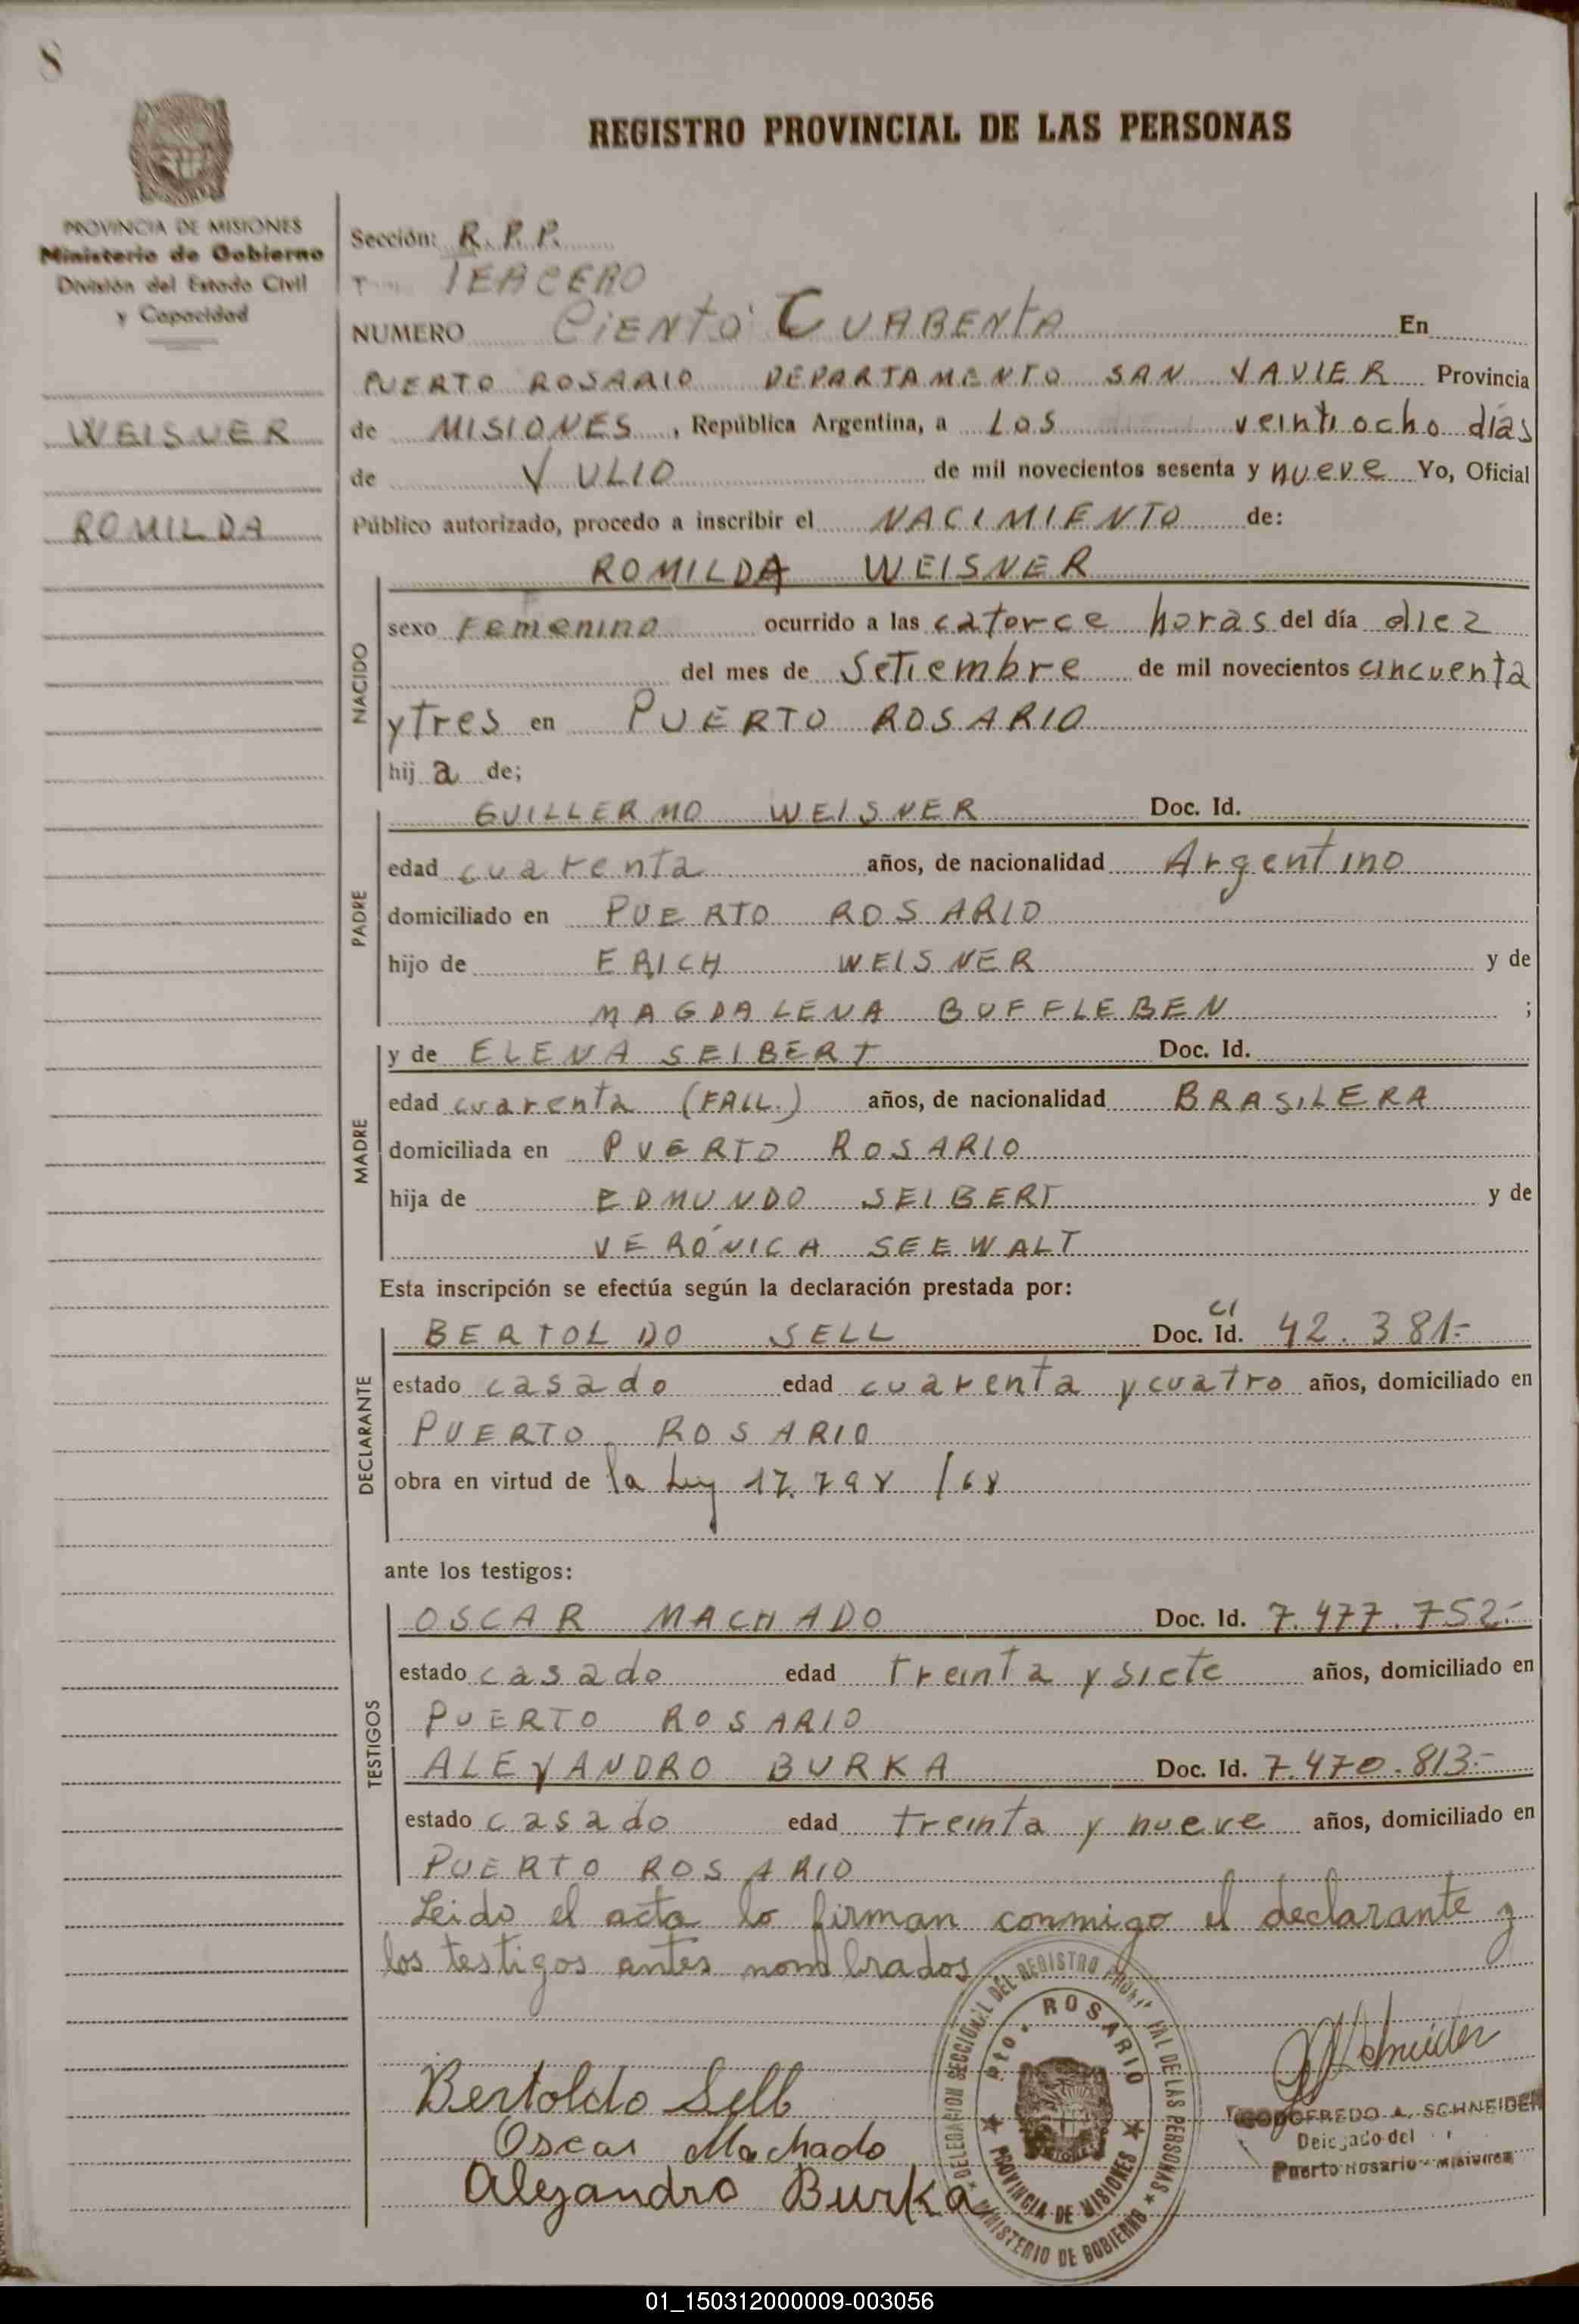 8
REGISTRO PROVINCIAL DE LAS PERSONAS
PROVINCIA DE MISIONES
Ministerio de Gobierno
División del Estado Civil
y Capacidad
WEISNER
ROMILDA
Sección: R.P.P.
TERCERO
NUMERO CIENTO CUARENTA En
PUERTO ROSARIO DEPARTAMENTO SAN JAVIER Provincia
de MISIONES, República Argentina, a LOS veintiocho días
de JULIO de mil novecientos sesenta y nueve Yo, Oficial
Público autorizado, procedo a inscribir el NACIMIENTO de:
ROMILDA WEISNER
NACIDO
sexo Femenino ocurrido a las catorce horas del día diez
del mes de Setiembre de mil novecientos cincuenta
y tres en PUERTO ROSARIO
hij a de;
PADRE
GUILLERMO WEISNER Doc. Id.
edad cuarenta años, de nacionalidad Argentino
domiciliado en PUERTO ROSARIO
hijo de ERICH WEISNER y de
MAGDALENA BUFFLEBEN ;
MADRE
y de ELENA SEIBERT Doc. Id.
edad cuarenta (FALL.) años, de nacionalidad BRASILERA
domiciliada en PUERTO ROSARIO
hija de EDMUNDO SEIBERT y de
VERÓNICA SEEWALT
Esta inscripción se efectúa según la declaración prestada por:
DECLARANTE
BERTOLDO SELL Doc. Id. CI 42.381-
estado casado edad cuarenta y cuatro años, domiciliado en
PUERTO ROSARIO
obra en virtud de la Ley 17.798 /68
ante los testigos:
TESTIGOS
OSCAR MACHADO Doc. Id. 7.477.752.-
estado casado edad treinta y siete años, domiciliado en
PUERTO ROSARIO
ALEJANDRO BURKA Doc. Id. 7.470.813.-
estado casado edad treinta y nueve años, domiciliado en
PUERTO ROSARIO
Leido el acta lo firman conmigo el declarante y
los testigos antes nombrados
Bertoldo Sell
Oscar Machado
Alejandro Burka
DELEGACION SECCIONAL DEL REGISTRO PROVINCIAL DE LAS PERSONAS
MINISTERIO DE GOBIERNO
Pto. ROSARIO
PROVINCIA DE MISIONES
Schneider
GODOFREDO A. SCHNEIDER
Delegado del
Puerto Rosario - Misiones
01_150312000009-003056